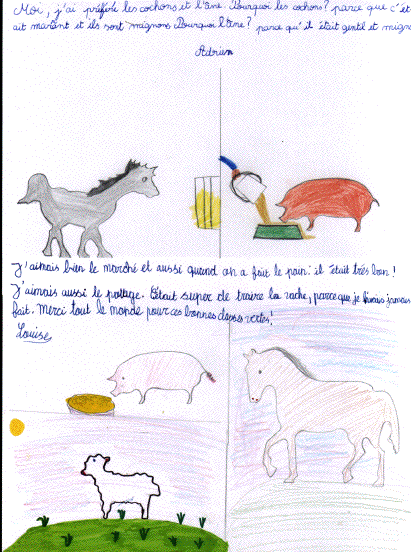 Moi, j'ai préféré les cochons et l'âne. Pourquoi les cochons? parce que c'ét
ait marrant et ils sont mignons Pourquoi l'âne? parce qu'il était gentil et migno
Adrien
J'aimais bien le marché et aussi quand on a fait le pain: il était très bon!
J'aimais aussi le potage. C'était super de traire la vache, parce que je l'avais jamais
fait. Merci tout le monde pour ces bonnes découvertes!
Louise